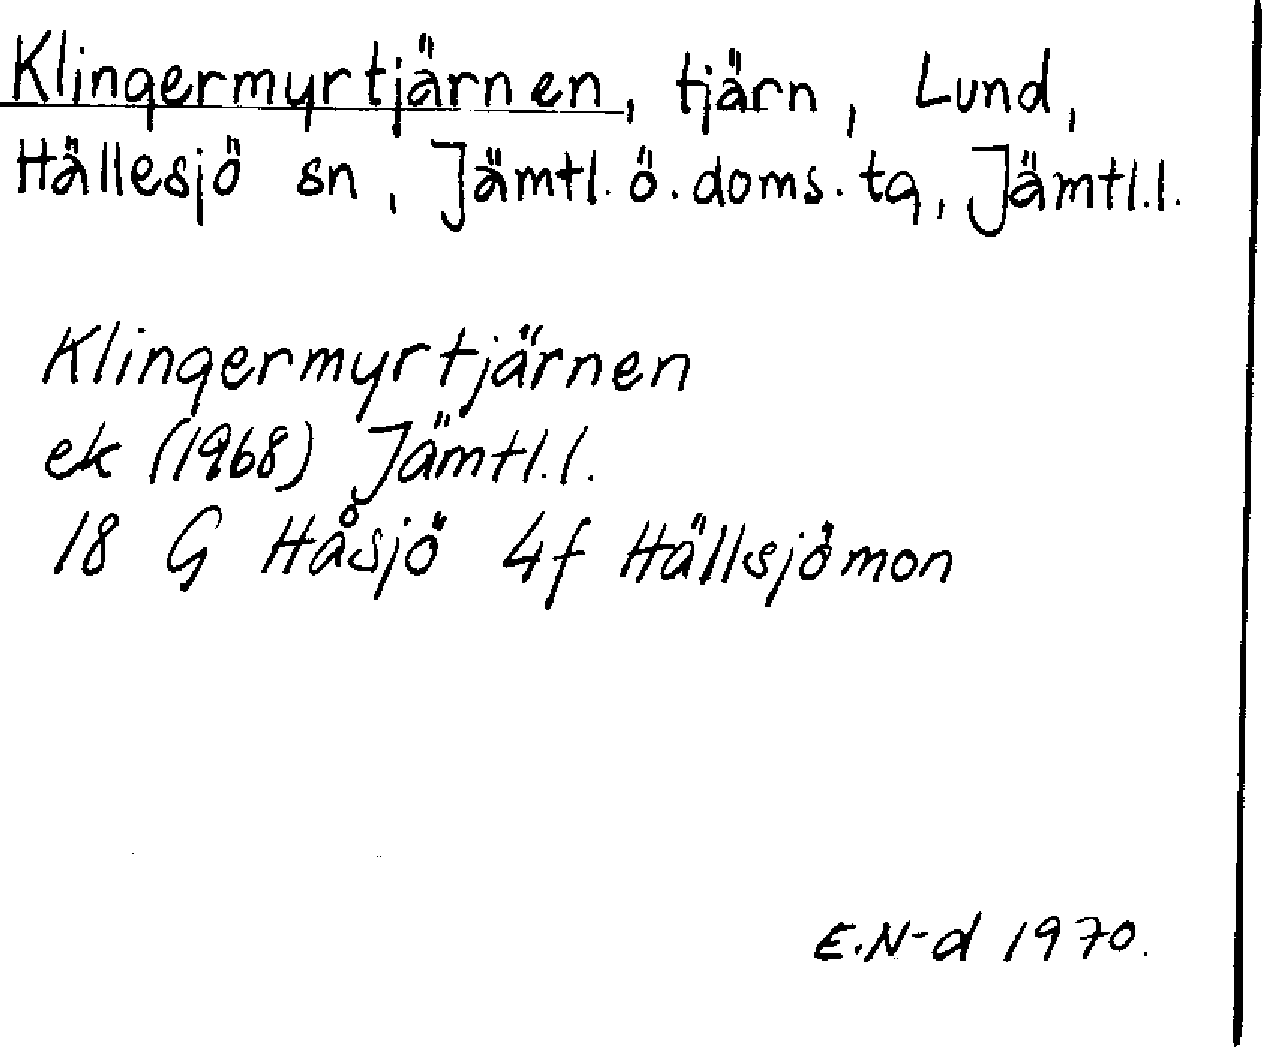 Klingermyrtjärnen, tjärn, Lund,
Hällesjö sn, Jämtl. ö. doms. tg, Jämtl.l.
Klingermyrtjärnen
ek (1968) Jämtl.l.
18 G Håsjö 4f Hällsjömon
E.N-d 1970.